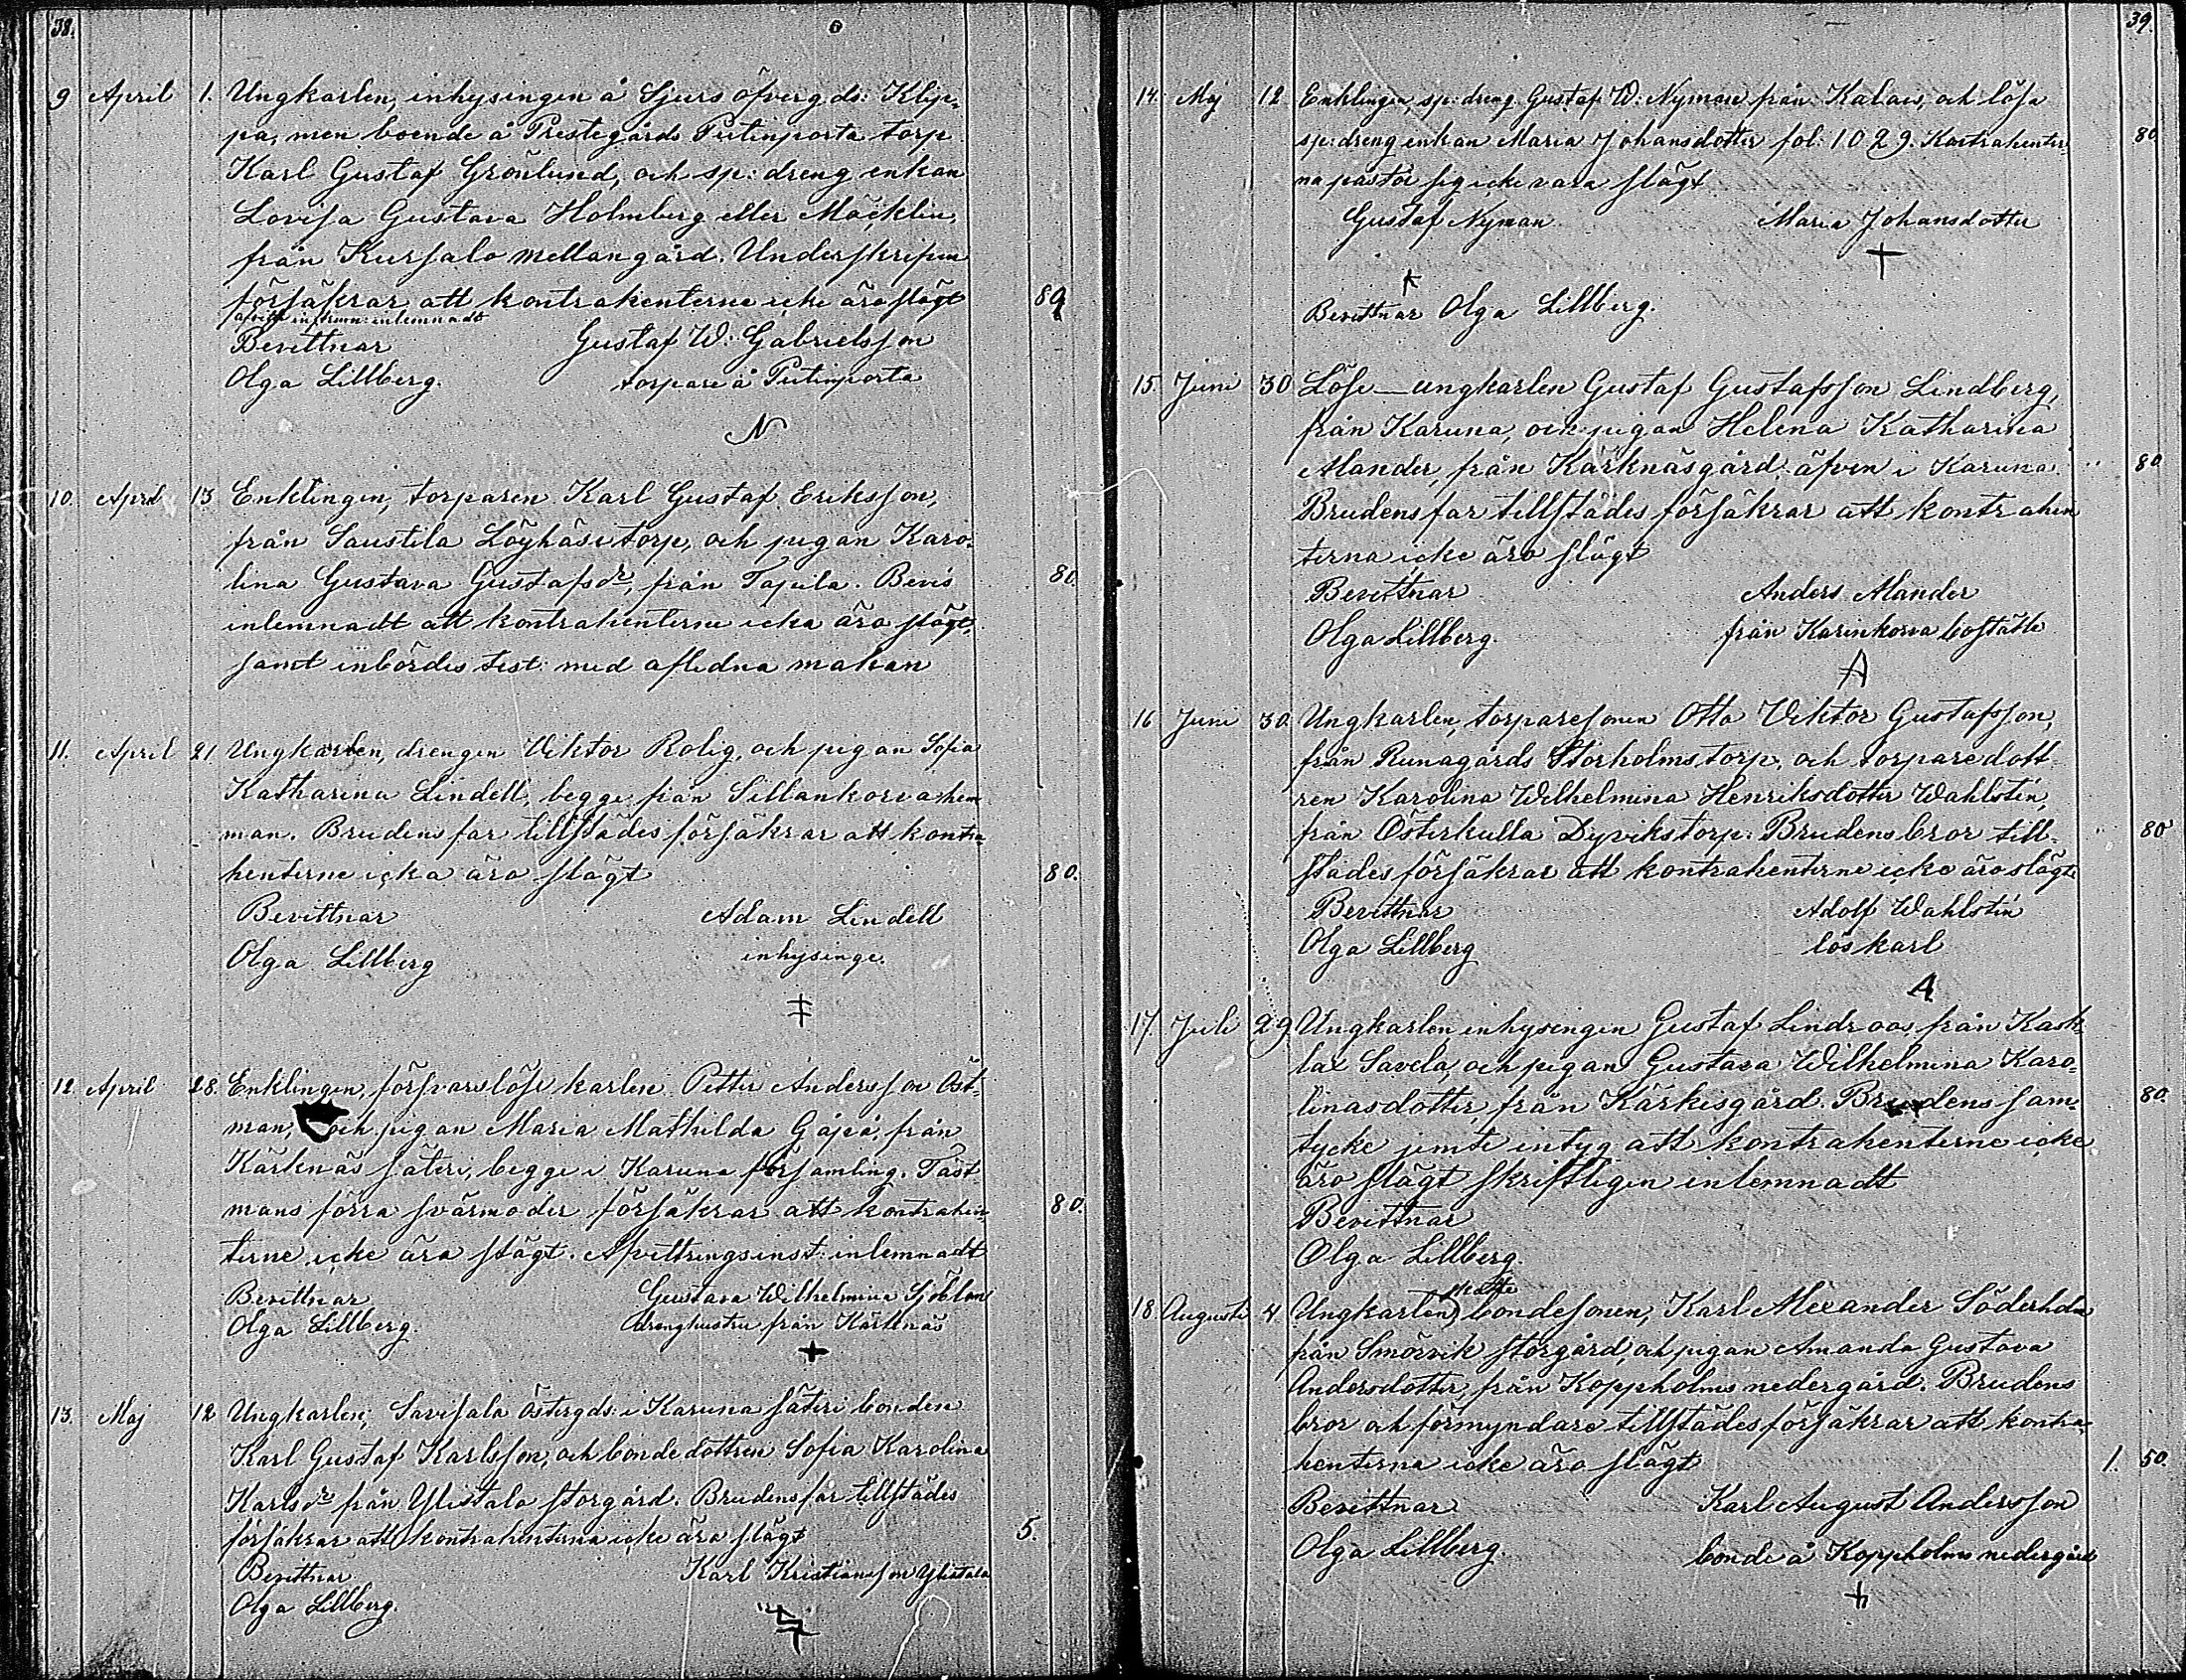 38.
9 April 1. Ungkarlen, inhysingen å Sjurs öfvergds: Klip-
pa, men boende å Prestegårds Putinporta torp
Karl Gustaf Grönlund, och sp: dreng enkan
Lovisa Gustava Holmberg eller Mäcklin,
från Kursalo mellangård. Underskrifven
försäkrar att kontrahenterne icke äro slägt 80
inlemnadt
Bevittnar Gustaf W: Gabrielsson
Olga Lillberg. torpare å Putinporta
N
10. April 13 Enklingen, torparen Karl Gustaf Eriksson,
från Saustila Löyhäsi torp, och pigan Karo-
lina Gustava Gustafsdr, från Tapila. Bevis 80.
inlemnadt att kontrahenterne icka äro slägt,
samt inbördes test: med aflidna makan
11. April 21. Ungkarlen, drengen Viktor Rolig, och pigan Sofia
Katharina Lindell, begge från Sillankorva hem
man. Brudens far tillstädes försäkrar att kontra-
henterne icka äro slägt 80.
Bevittnar Adam Lindell
Olga Lillberg inhysinge.
12. April 28. Enklingen, försvarslöse karlen Petter Andersson Öst-
man, och pigan Maria Mathilda Gåpå, från
Kärknäs säteri, begge i Karuna församling. Fäst-
mans förra svärmoder försäkrar att kontrahen- 80.
terne icke äro slägt. Afvittringsinst: inlemnadt
Bevittnar Gustava Wilhelmina Sjöblom
Olga Lillberg. drenghustru från Kärknäs
+
13. Maj 12 Ungkarlen, Savisalo östergds: i Karuna säteri bonden
Karl Gustaf Karlsson, och bondedottren Sofia Karolina
Karlsdr från Ylistalo storgård. Brudens far tillstädes
försäkrar att kontrahenterna icke äro slägt 5.
Bevittnar Karl Kristiansson Ylistalo
Olga Lillberg.
39.
14. Maj 12 Enklingen, sp: dreng Gustaf W: Nyman från Kalais, och lösa
sp: dreng enkan Maria Johansdotter fol: 1029. Kontrahenter- 80
na påstår sig icke vara slägt
Gustaf Nyman Maria Johansdotter
+
Bevittnar Olga Lillberg.
15. Juni 30 Löse ungkarlen Gustaf Gustafsson Lindberg,
från Karuna, och pigan Helena Katharina
Alander, från Kärknäsgård äfven i Karuna. 80
Brudens far tillstädes försäkrar att kontrahen
terna icke äro slägt
Bevittnar Anders Alander
Olga Lillberg. från Karinkorva boställe
A
16 Juni 30. Ungkarlen, torparesonen Otto Viktor Gustafsson,
från Runagårds Storholms torp, och torparedott-
ren Karolina Wilhelmina Henriksdotter Wahlstén,
från Österkulla Dyvikstorp. Brudens bror till- 80
stades försäkrar att kontrahenterne icke äro slägt
Bevittnar Adolf Wahlstén
Olga Lillberg löskarl
A
17. Juli 29. Ungkarlen, inhysingen Gustaf Lindroos från Kask-
lax Savela, och pigan Gustava Wilhelmina Karo-
linasdotter, från Kärkisgård. Brudens sam- 80.
tycke jemte intyg att kontrahenterne icke
äro slägt skriftligen inlemnadt
Bevittnar
Olga Lillberg.
18. Augusti 4. Ungkarlen, bondesonen, Karl Alexander Söderholm
från Smörvik storgård, och pigan Amanda Gustava
Andersdotter, från Koppholms nedergård. Brudens
bror och förmyndare tillstädes försäkrar att kontra-
henterna icke äro slägt 1. 50.
Bevittnar Karl August Andersson
Olga Lillberg. bonde å Koppholms nedergård